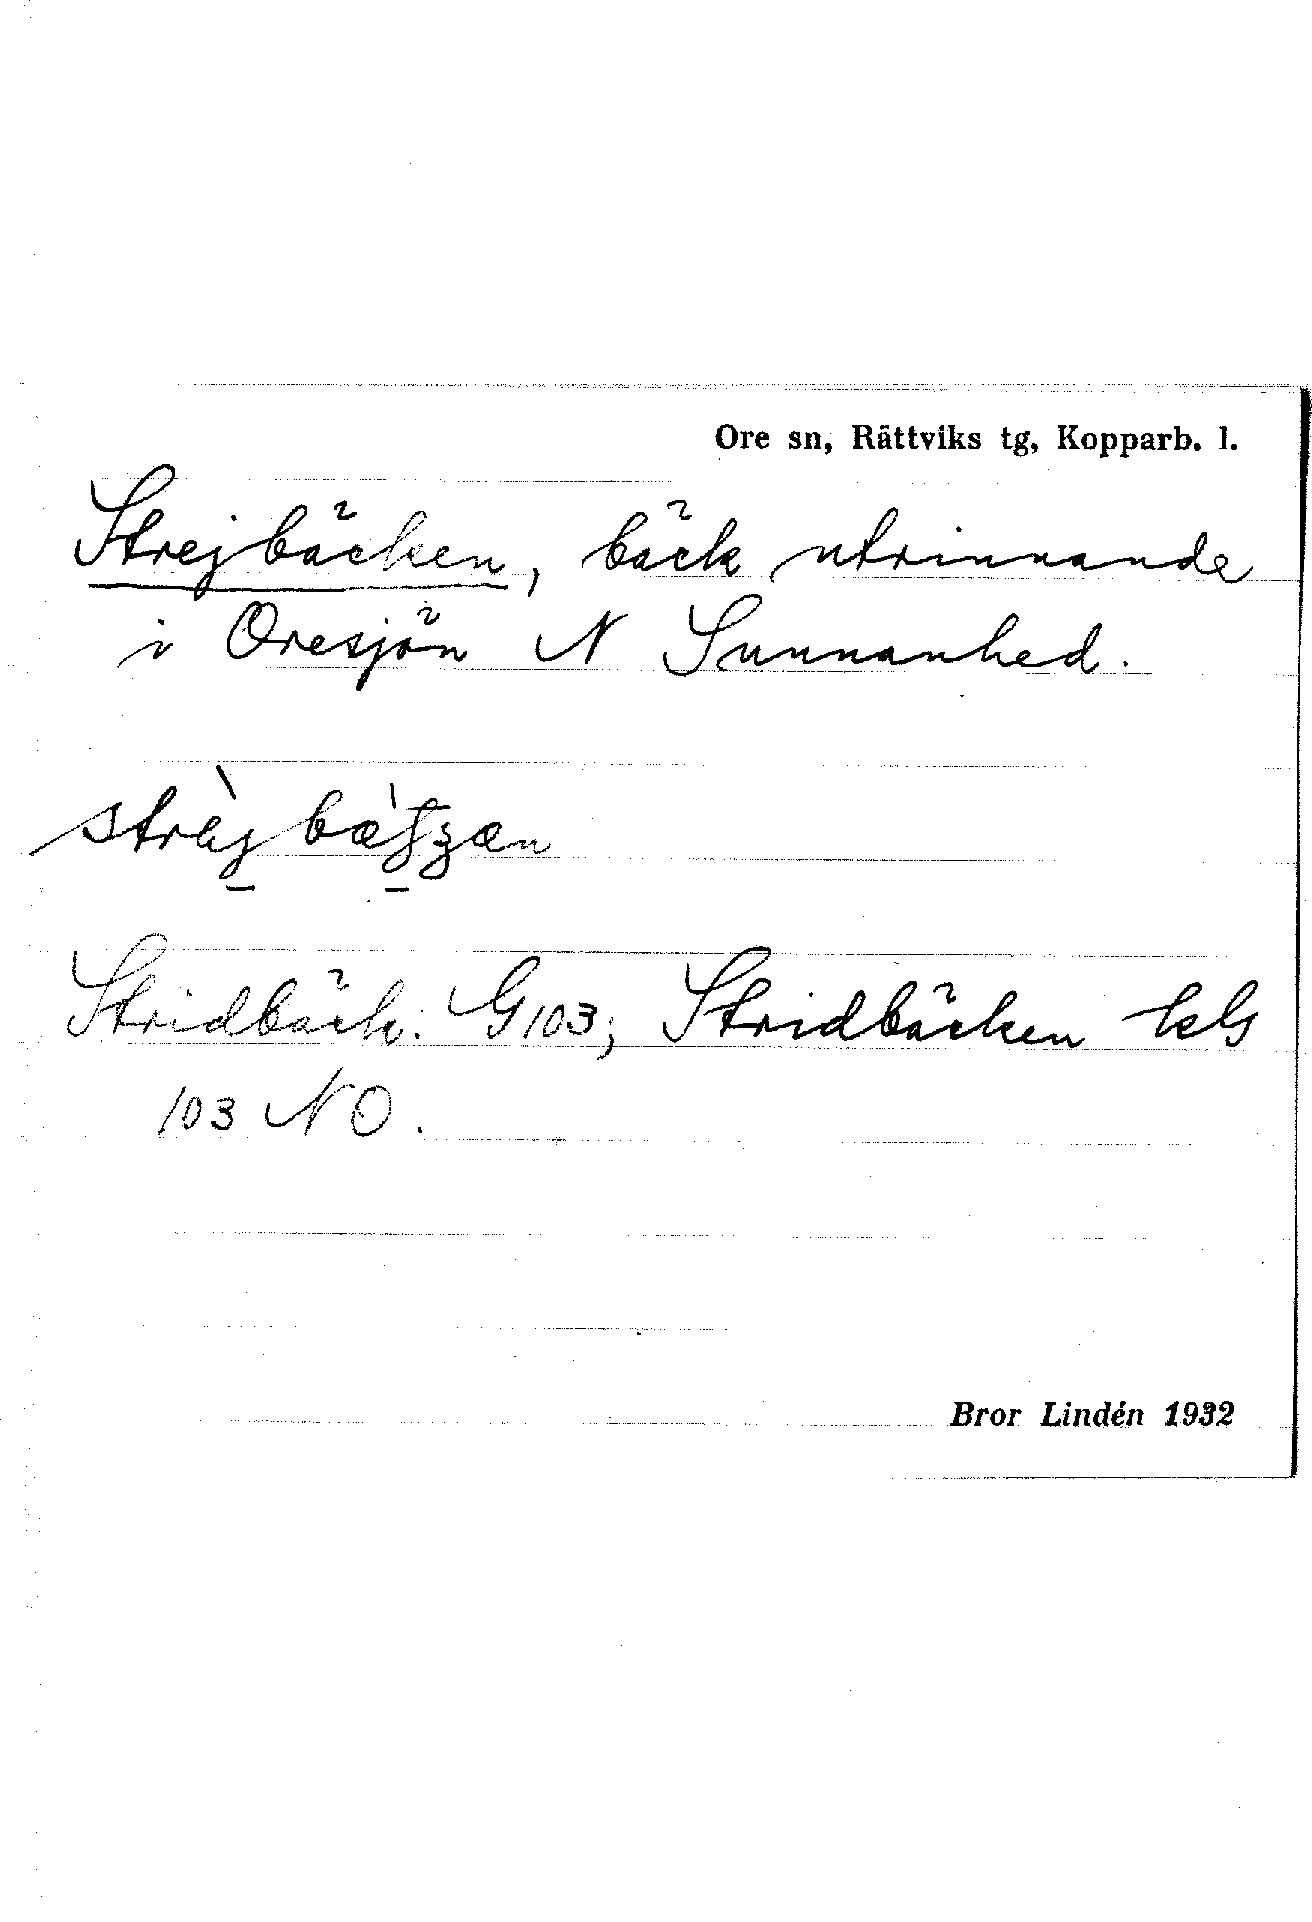 Ore sn, Rättviks tg, Kopparb. l.
Strejbäcken, bäck utrinnande
i Oresjön N Sunnanhed.
Stridbäck. G103; Stridbäcken
103 NO.
Bror Lindén 1932